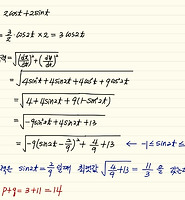 2cost+2sint
= 3/2·cos2t×2 = 3cos2t
=√((dx/dt)²+(dy/dt)²)
=√(4sin²t+4sin2t+4cos²t+9cos²2t)
=√(4+4sin2t+9(1-sin²2t))
=√(-9sin²2t+4sin2t+13)
=√(-9(sin2t-2/9)²+4/9+13) ← -1≤sin2t≤
sin2t=2/9 일때 최댓값 √(4/9+13) = 11/3 을
p+q=3+11=14